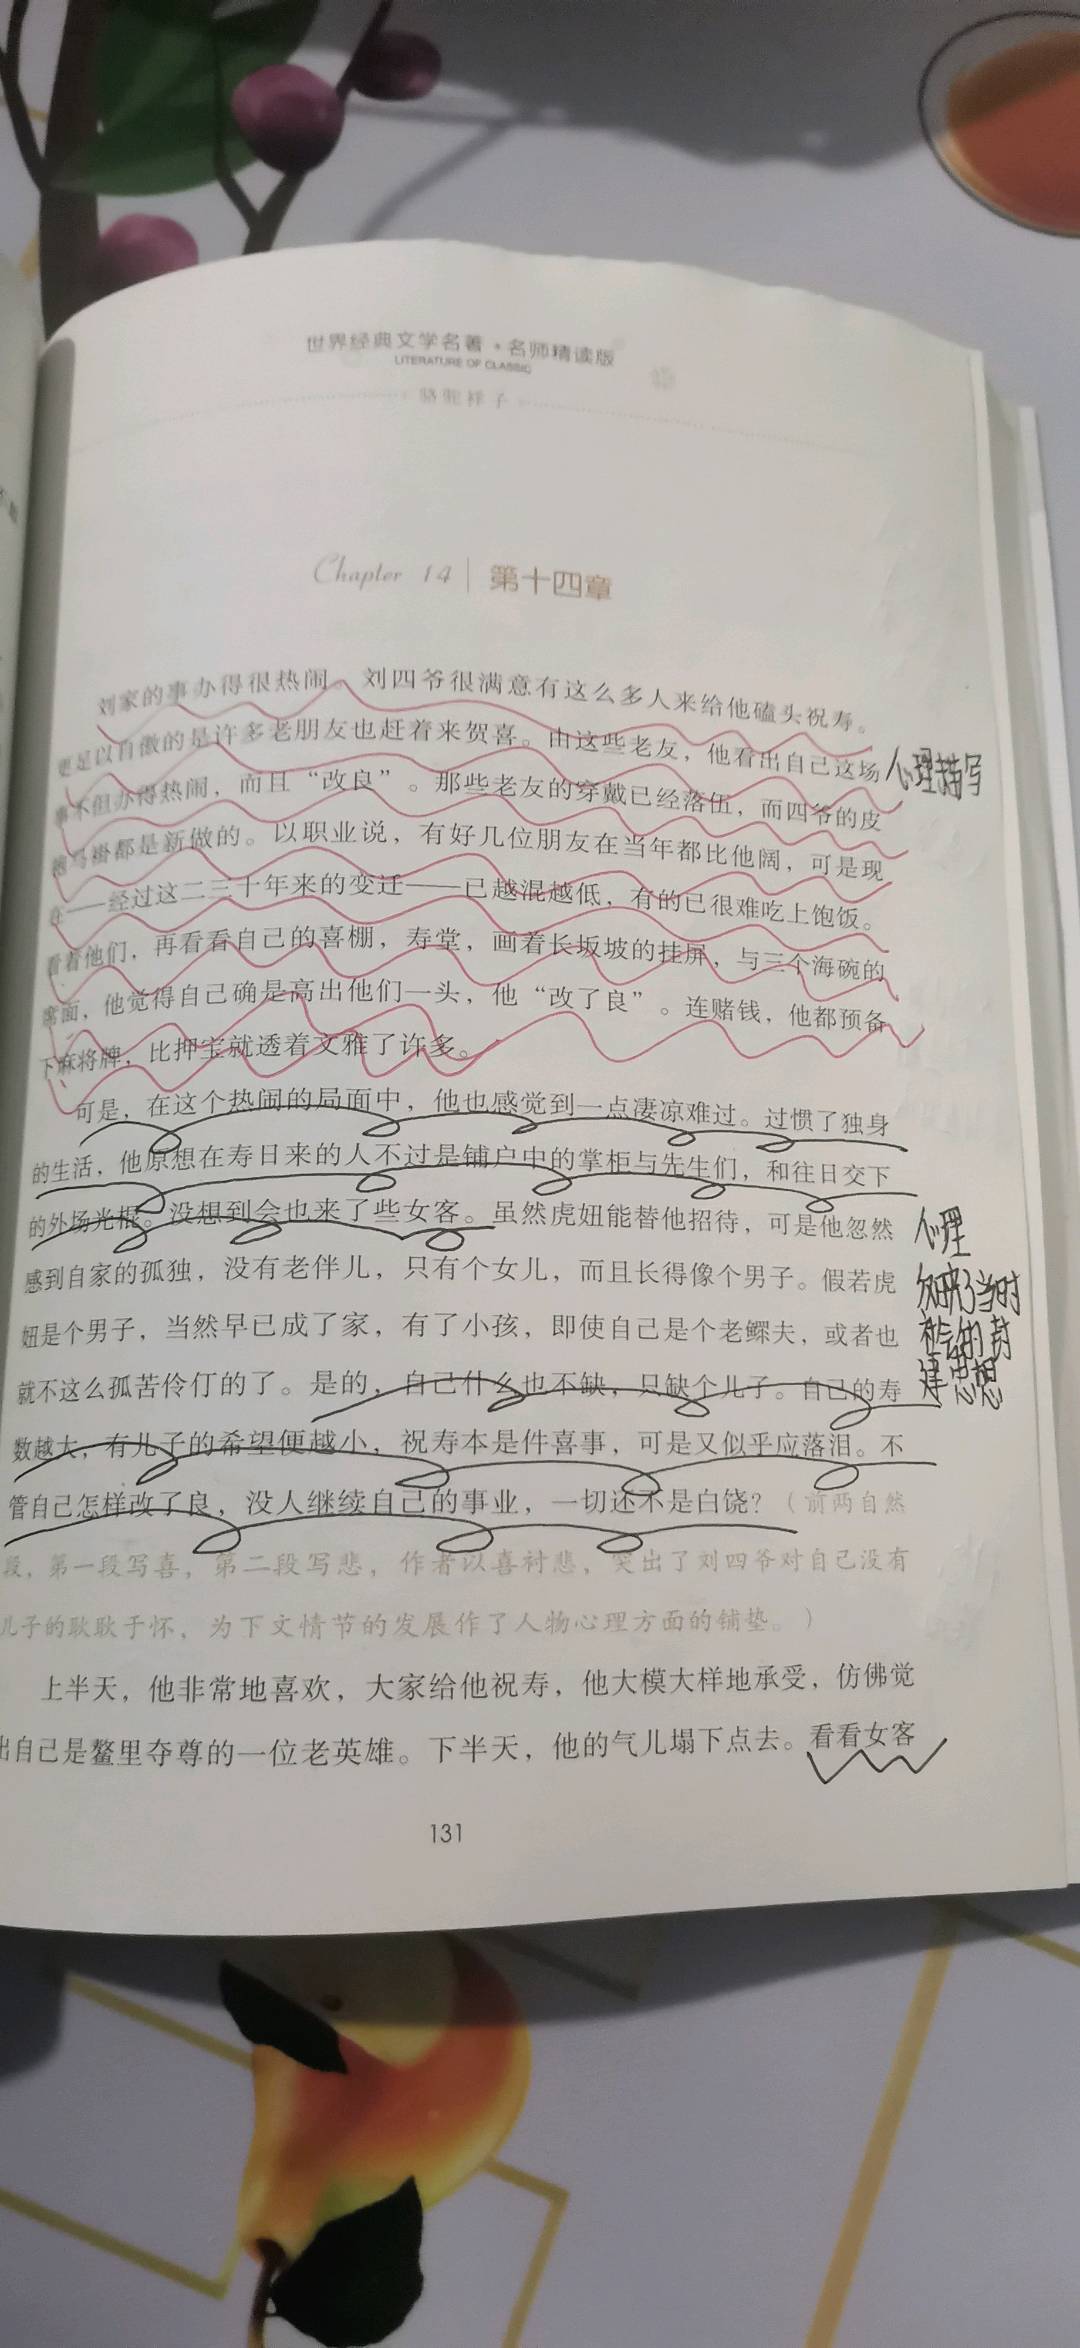 世界经典文学名著·名师精读版
LITERATURE OF CLASSIC
骆驼祥子
Chapter 14 第十四章
刘家的事办得很热闹。刘四爷很满意有这么多人来给他磕头祝寿。
更足以自傲的是许多老朋友也赶着来贺喜。由这些老友，他看出自己这场
事不但办得热闹，而且“改良”。那些老友的穿戴已经落伍，而四爷的皮
袍马褂都是新做的。以职业说，有好几位朋友在当年都比他阔，可是现
在——经过这二三十年来的变迁——已越混越低，有的已很难吃上饱饭。
看着他们，再看看自己的喜棚，寿堂，画着长坂坡的挂屏，与三个海碗的
席面，他觉得自己确是高出他们一头，他“改了良”。连赌钱，他都预备
下麻将牌，比押宝就透着文雅了许多。
心理描写
可是，在这个热闹的局面中，他也感觉到一点凄凉难过。过惯了独身
的生活，他原想在寿日来的人不过是铺户中的掌柜与先生们，和往日交下
的外场光棍。没想到会也来了些女客。虽然虎妞能替他招待，可是他忽然
感到自家的孤独，没有老伴儿，只有个女儿，而且长得像个男子。假若虎
妞是个男子，当然早已成了家，有了小孩，即使自己是个老鳏夫，或者也
就不这么孤苦伶仃的了。是的，自己什么也不缺，只缺个儿子。自己的寿
数越大，有儿子的希望便越小，祝寿本是件喜事，可是又似乎应落泪。不
管自己怎样改了良，没人继续自己的事业，一切还不是白饶？（前两自然
段，第一段写喜，第二段写悲，作者以喜衬悲，突出了刘四爷对自己没有
儿子的耿耿于怀，为下文情节的发展作了人物心理方面的铺垫。）
心理
了当时
社会的封
建思想
上半天，他非常地喜欢，大家给他祝寿，他大模大样地承受，仿佛觉
出自己是鳌里夺尊的一位老英雄。下半天，他的气儿塌下点去。看看女客
131